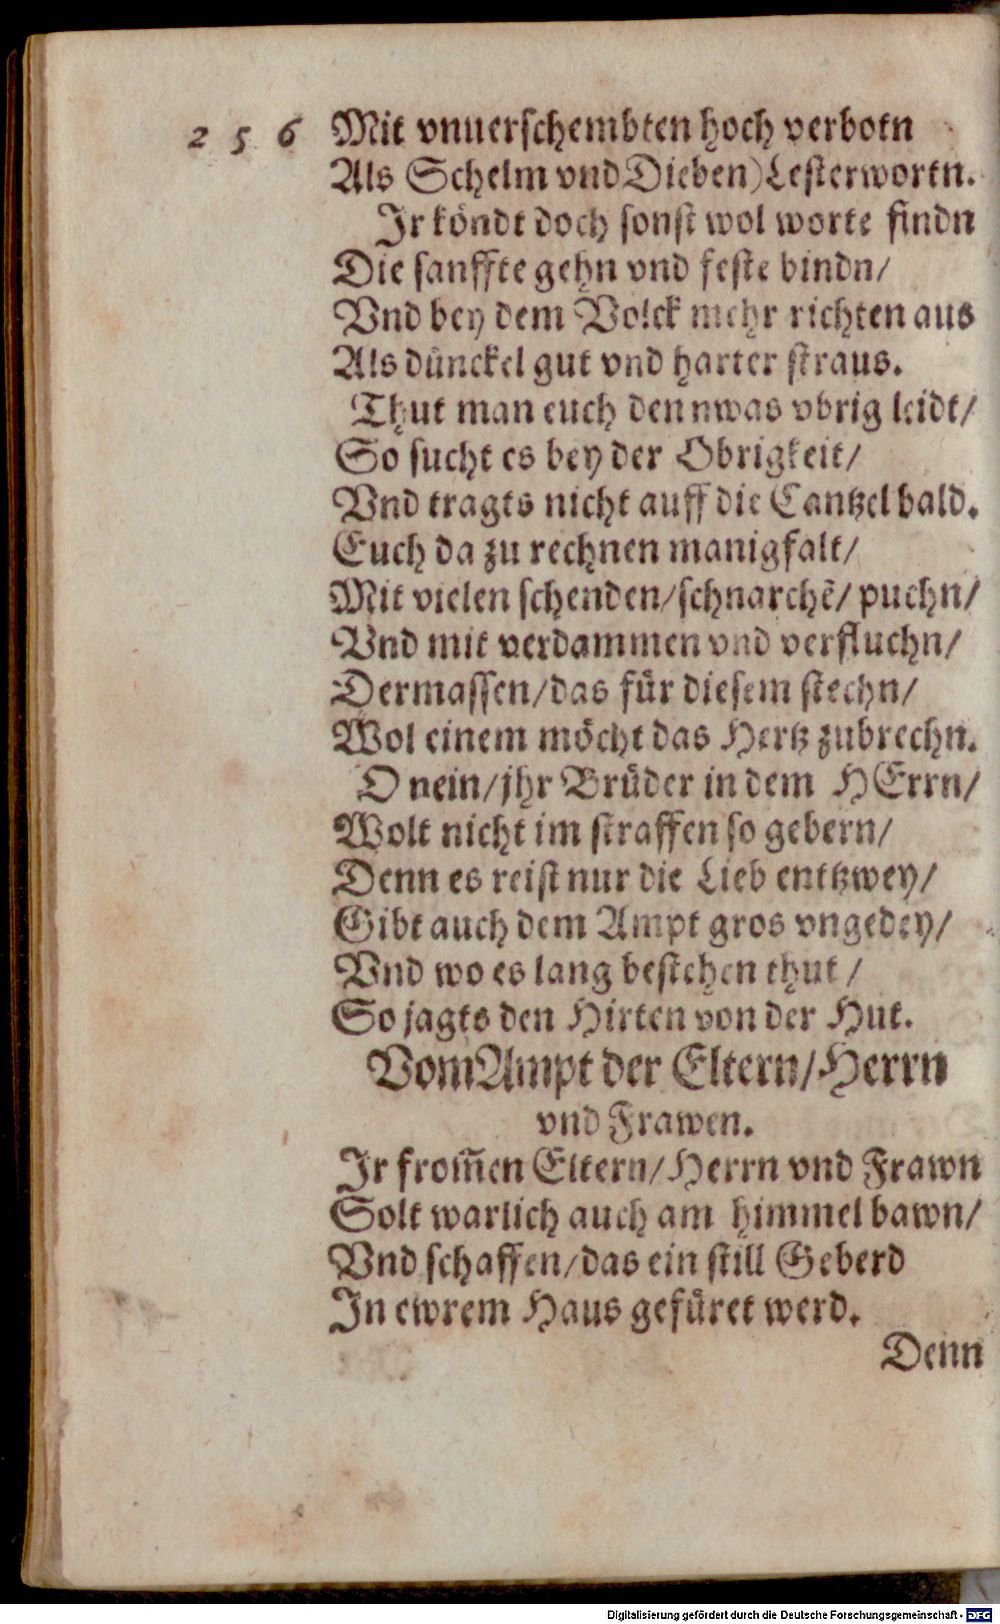 2 5 6 Mit vnuerschembten hoch verbotn
Als Schelm vnd Dieben) Lesterwortn.
Jr köndt doch sonst wol worte findn
Die sanffte gehn vnd feste bindn/
Vnd bey dem Volck mehr richten aus
Als dünckel gut vnd harter straus.
Thut man euch den nwas vbrig leidt/
So sucht es bey der Obrigkeit/
Vnd tragts nicht auff die Cantzel bald.
Euch da zu rechnen manigfalt/
Mit vielen schenden/schnarchẽ/ puchn/
Vnd mit verdammen vnd verfluchn/
Dermassen/das für diesem stechn/
Wol einem möcht das Hertz zubrechn.
O nein/jhr Brüder in dem HErrn/
Wolt nicht im straffen so gebern/
Denn es reist nur die Lieb enttzwey/
Gibt auch dem Ampt gros vngedey/
Vnd wo es lang bestehen thut/
So jagts den Hirten von der Hut.
Vom Ampt der Eltern/Herrn
vnd Frawen.
Jr from̃en Eltern/Herrn vnd Frawn
Solt warlich auch am himmel bawn/
Vnd schaffen/das ein still Geberd
Jn ewrem Haus gefüret werd.
Denn
Digitalisierung gefördert durch die Deutsche Forschungsgemeinschaft - DFG